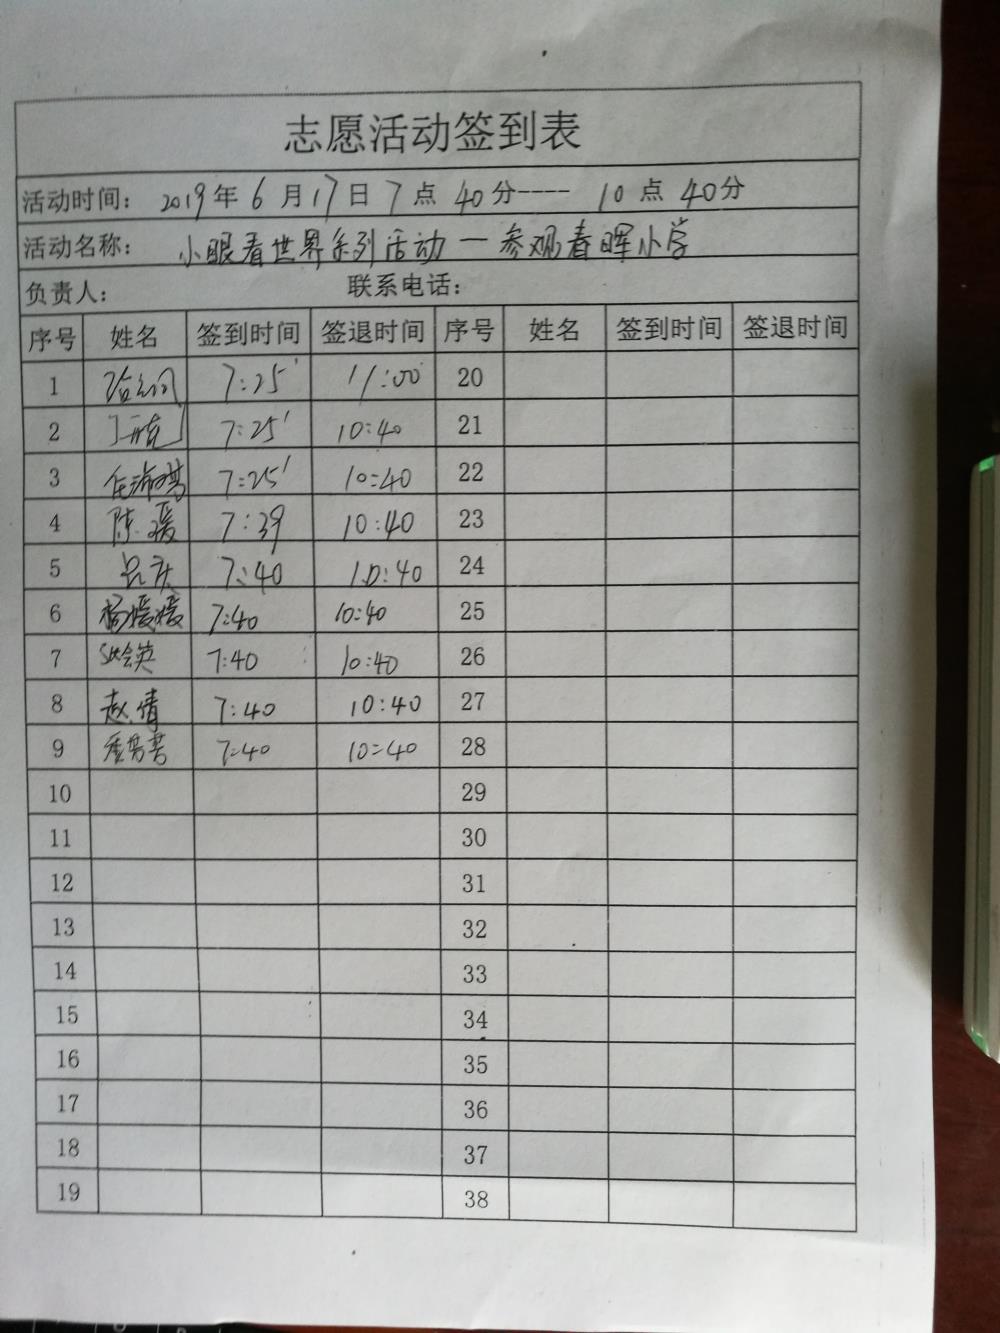 志愿活动签到表
活动时间: 2019年6月17日7点40分----10点40分
活动名称: 小眼看世界系列活动一参观春晖小学
负责人: 联系电话:
序号 姓名 签到时间 签退时间 序号 姓名 签到时间 签退时间
1 7:25' 11:00 20
2 7:25' 10:40 21
3 7:25' 10:40 22
4 陈媛 7:39 10:40 23
5 吕庆 7:40 10:40 24
6 杨媛媛 7:40 10:40 25
7 7:40 10:40 26
8 赵倩 7:40 10:40 27
9 7:40 10:40 28
10 29
11 30
12 31
13 32
14 33
15 34
16 35
17 36
18 37
19 38